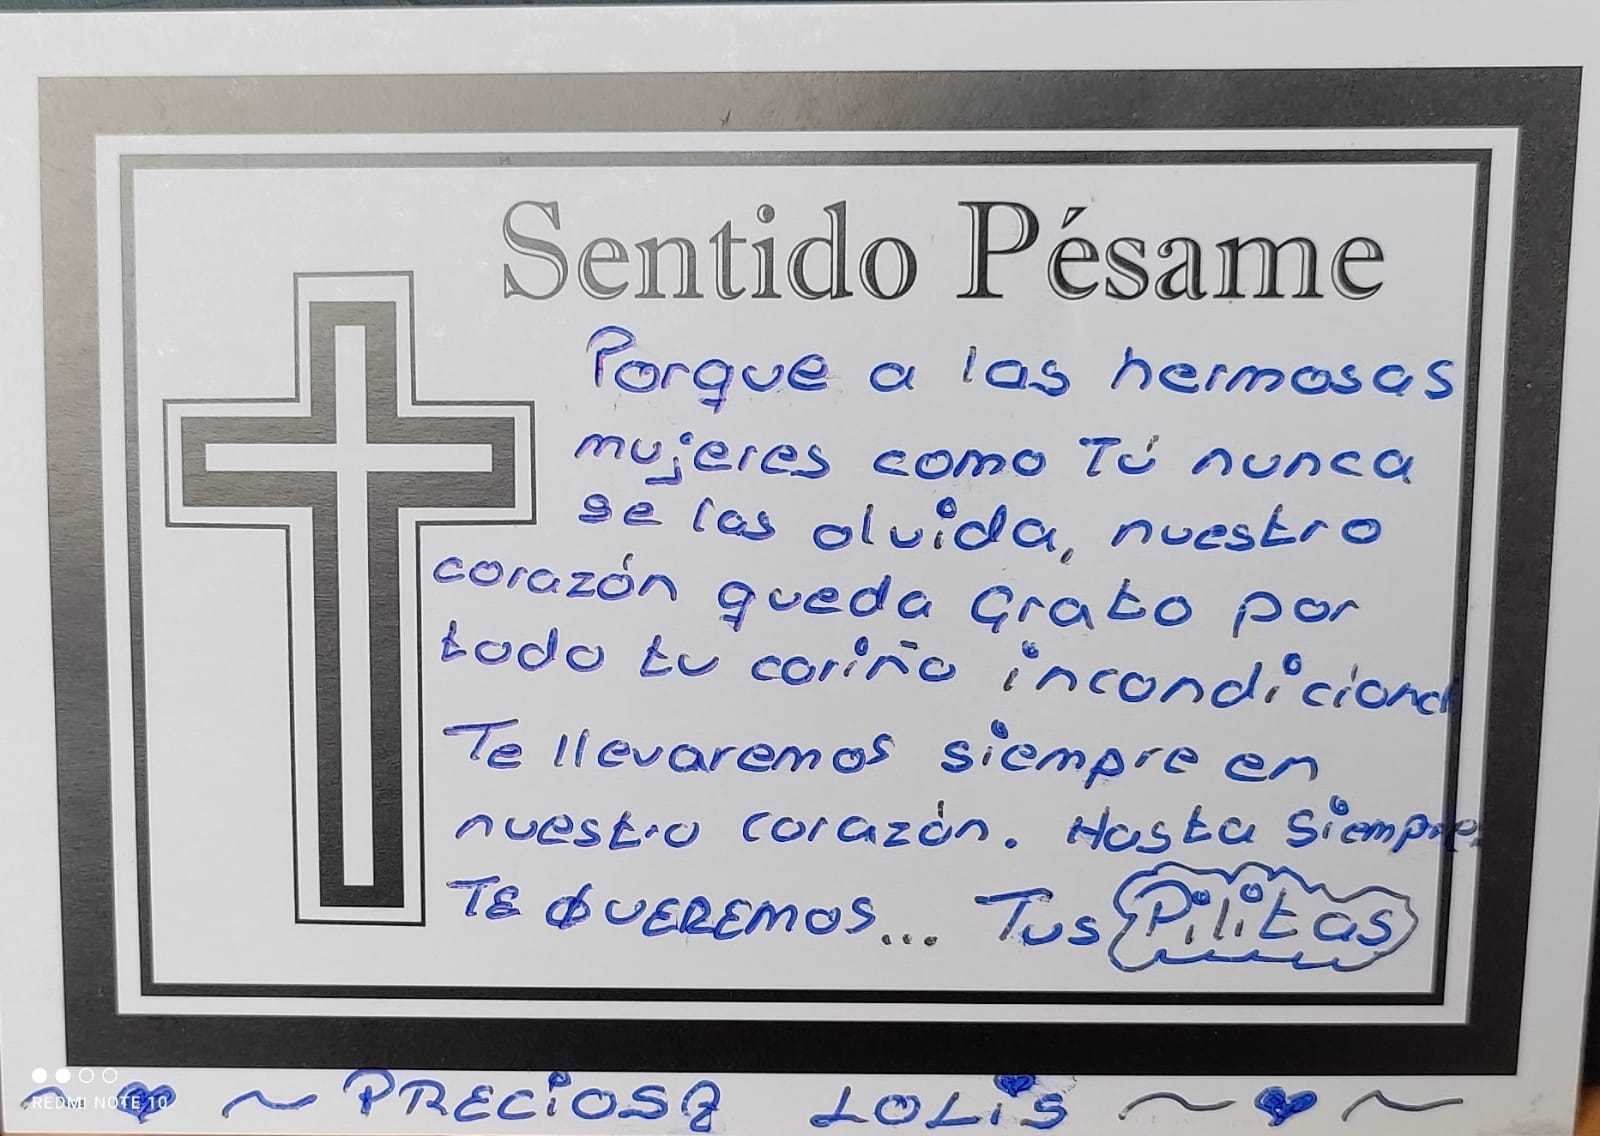 Sentido Pésame
Porque a las hermosas
mujeres como Tú nunca
se las olvida, nuestro
corazón queda Grato por
todo tu cariño incondicional
Te llevaremos siempre en
nuestro corazón. Hasta siempre.
TE QUEREMOS... Tus Pilitas
~ ~ PRECIOSA LOLIS ~ ~
REDMI NOTE 10